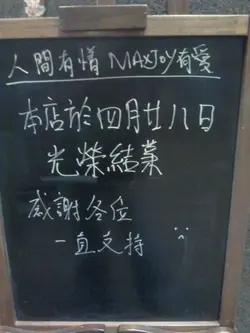 人間有情 MAXJOY有愛
本店於四月廿八日
光榮結業
感謝各位
一直支持 :(